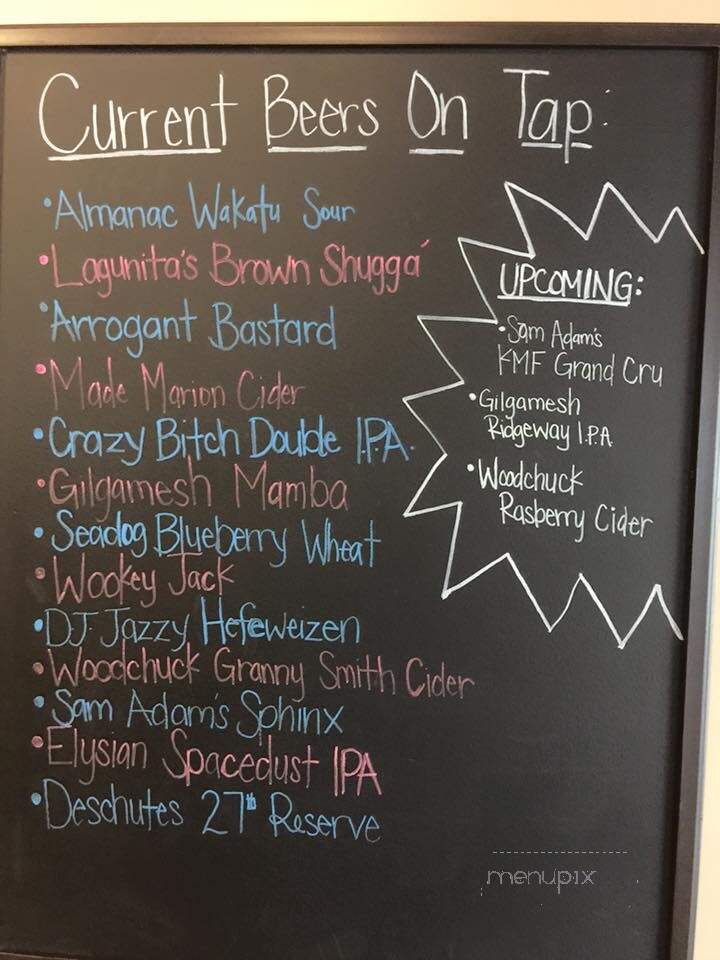 Current Beers On Tap:
•Almanac Wakatu Sour
•Lagunita's Brown Shugga'
•Arrogant Bastard
•Made Marion Cider
•Crazy Bitch Double I.P.A.
•Gilgamesh Mamba
•Seadog Blueberry Wheat
•Wookey Jack
•DJ Jazzy Hefeweizen
•Woodchuck Granny Smith Cider
•Sam Adam's Sphinx
•Elysian Spacedust IPA
•Deschutes 27th Reserve
UPCOMING:
•Sam Adam's
KMF Grand Cru
•Gilgamesh
Ridgeway I.P.A
•Woodchuck
Rasberry Cider
menupix